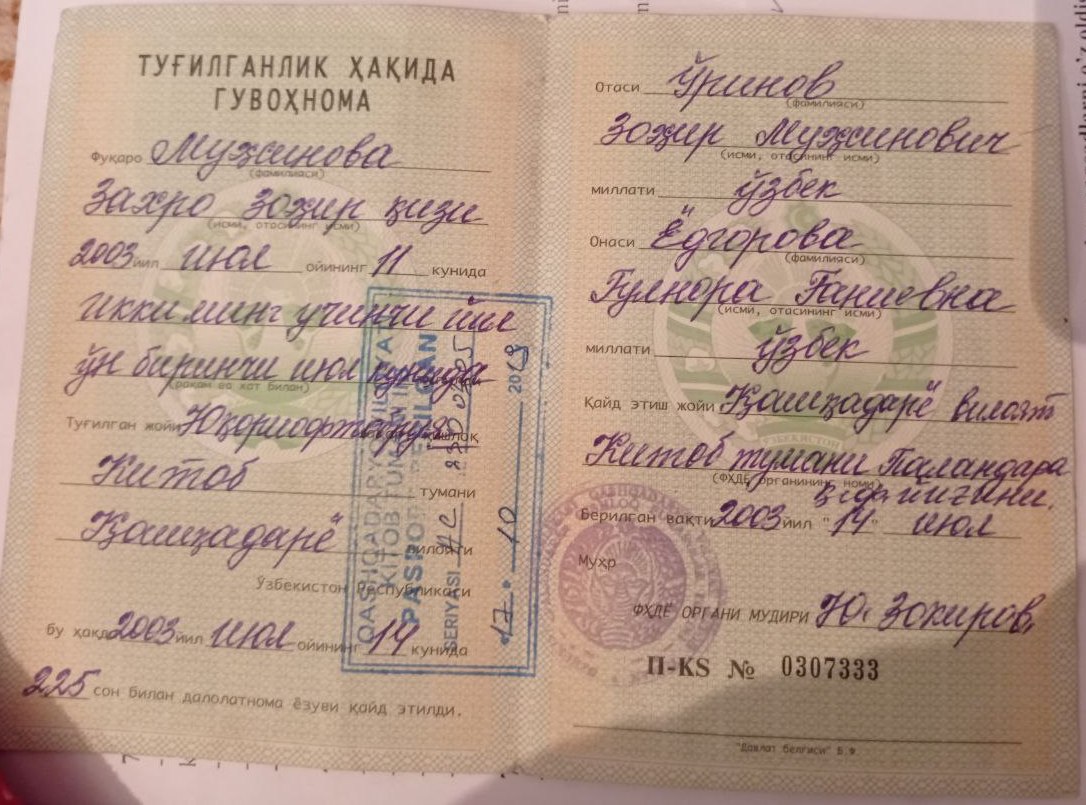 ТУҒИЛГАНЛИК ҲАҚИДА
ГУВОҲНОМА
Фуқаро Муҳсинова
(фамилияси)
Захро Зоҳир қизи
(исми, отасининг исми)
2003 йил июл ойининг 11 кунида
икки минг учинчи йил
ўн биринчи июл кунида
(рақам ва хат билан)
Туғилган жойи қишлоқ
Китоб тумани
Қашқадарё вилояти
Ўзбекистон Республикаси
бу ҳақда 2003 йил июл ойининг 14 кунида
225 сон билан далолатнома ёзуви қайд этилди.
QASHQADARYO VILOYATI
KITOB TUMANI
PASPORT BERILGAN
SERIYASI AC
17. 10 2019
Отаси Ўринов
(фамилияси)
Зоҳир Муҳсинович
(исми, отасининг исми)
миллати ўзбек
Онаси Ёдгорова
(фамилияси)
Гулнора Ганиевна
(исми, отасининг исми)
миллати ўзбек
Қайд этиш жойи Қашқадарё вилоят
Китоб тумани Паландара
(ФҲДЁ органининг номи)
Берилган вақти 2003 йил "14" июл
Муҳр
ФҲДЁ ОРГАНИ МУДИРИ Ю. Зокиров
II-KS № 0307333
"Давлат белгиси" Б Ф